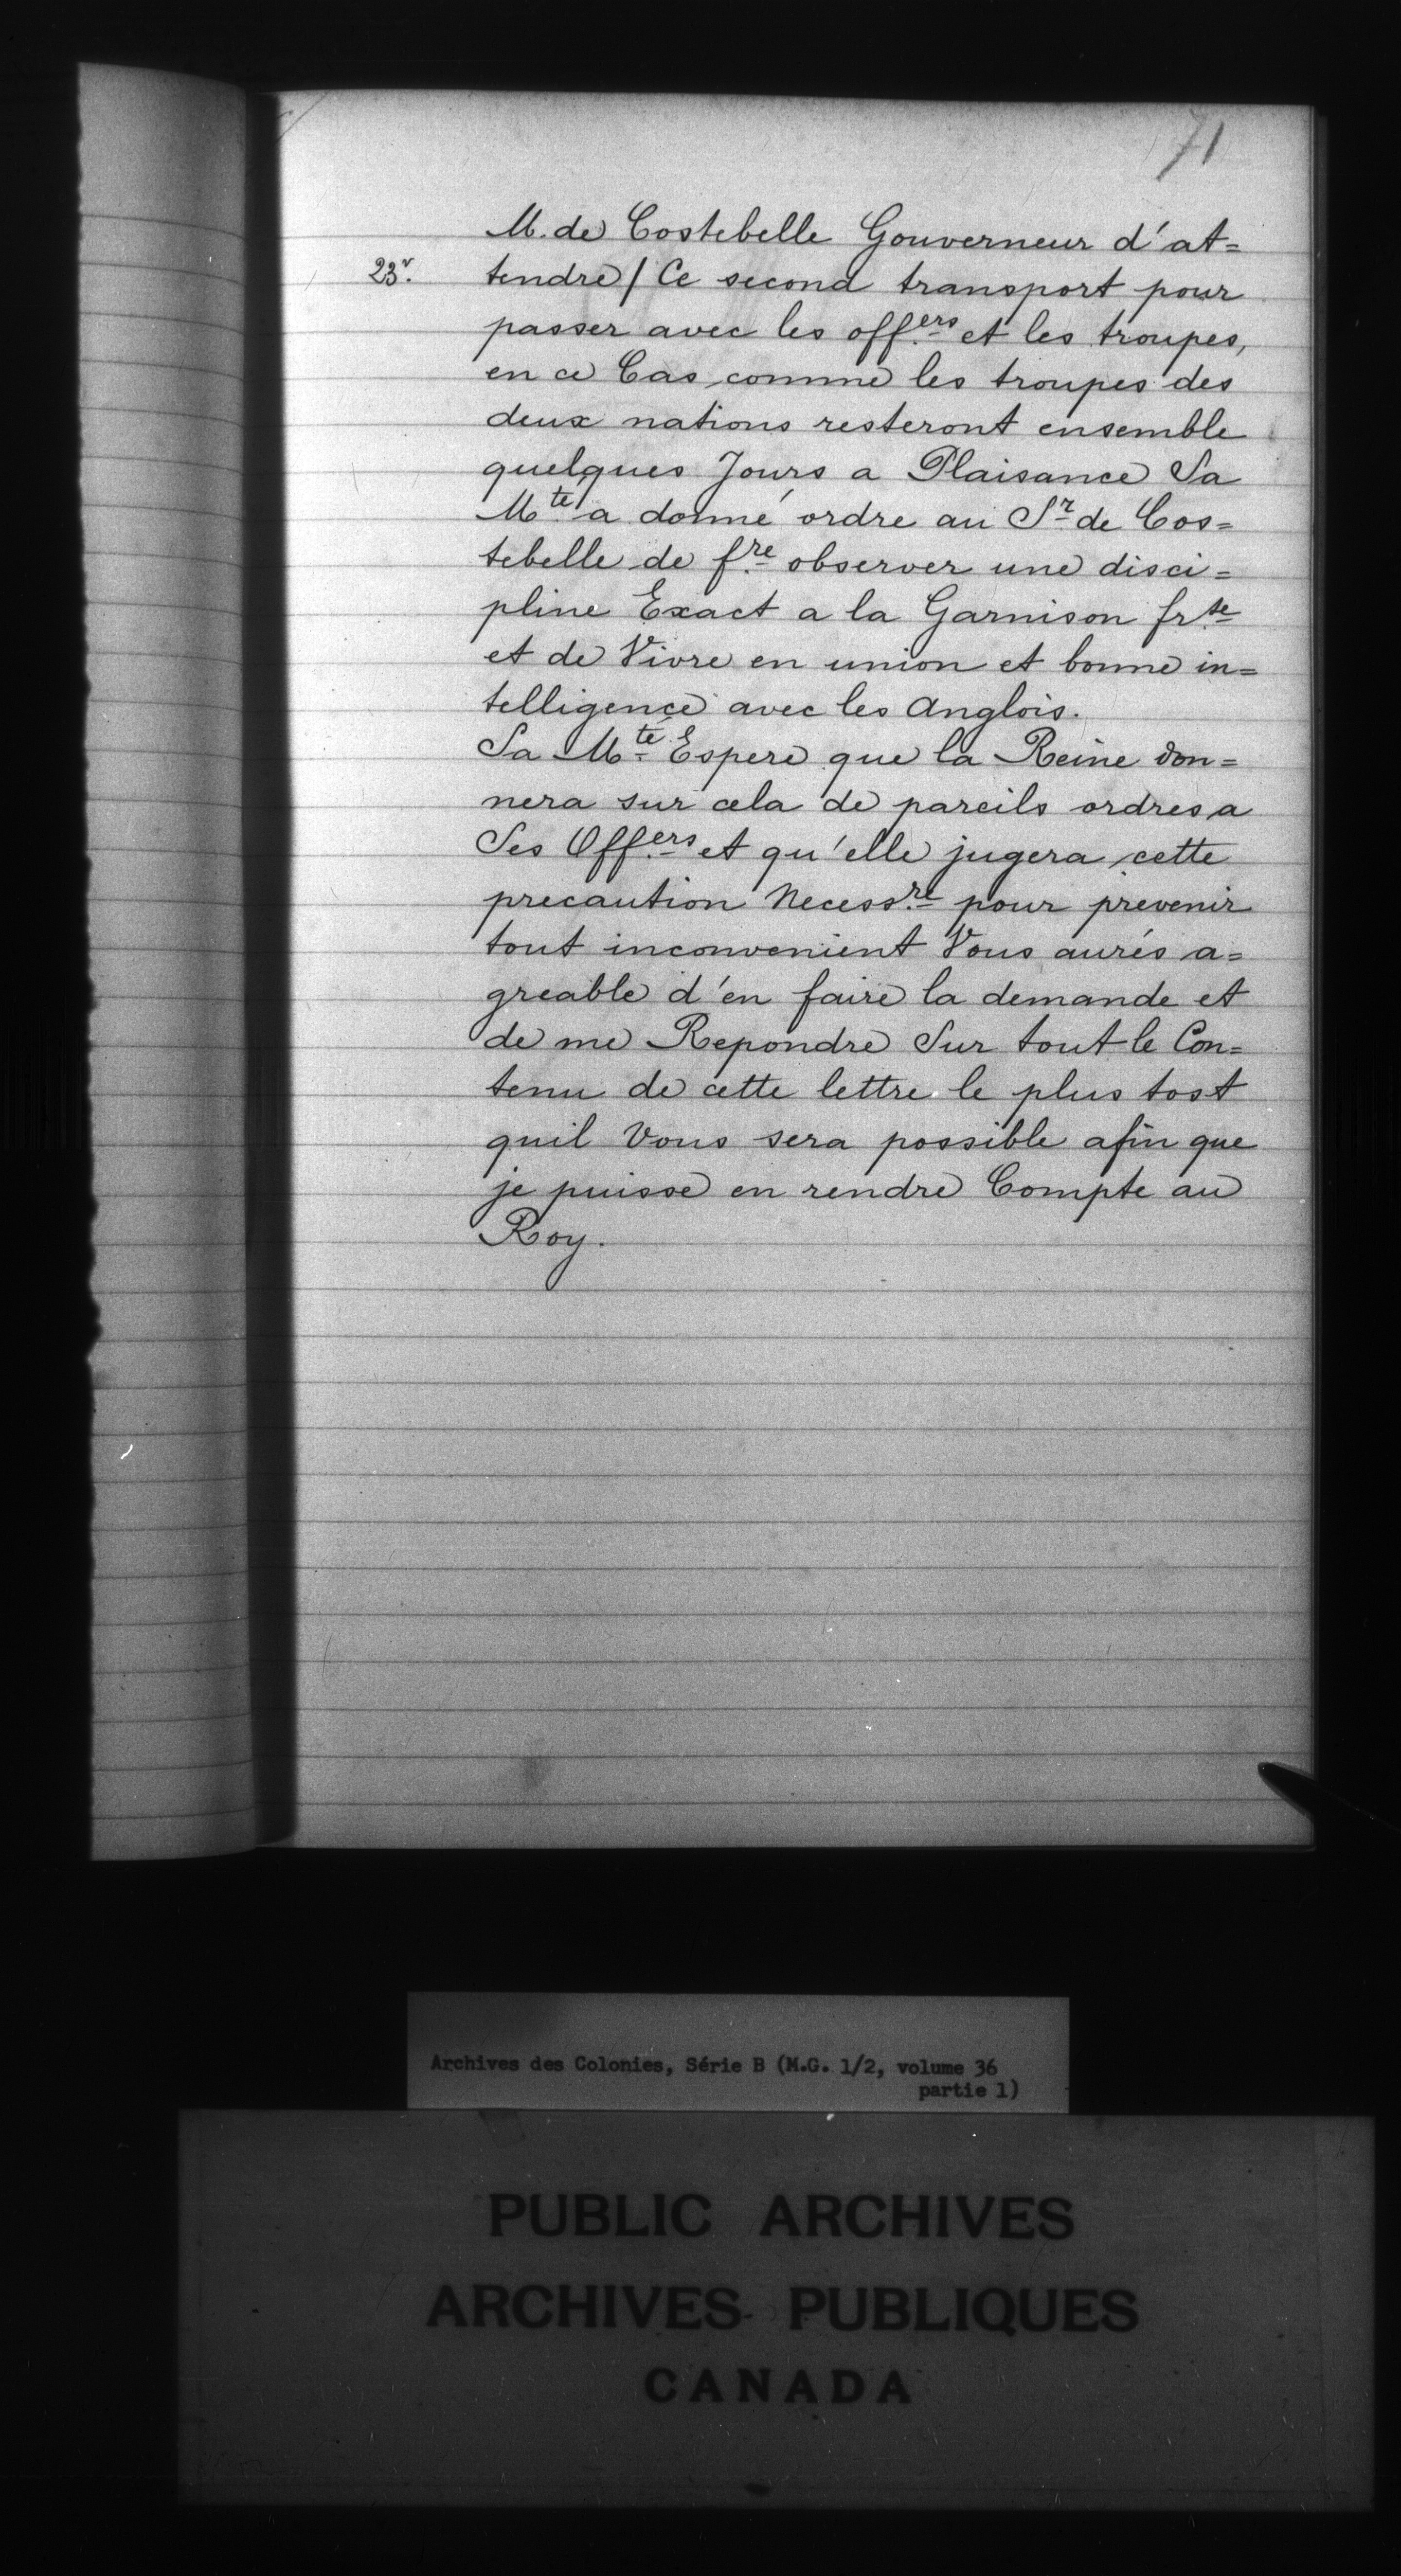 71
M. de Costebelle Gouverneur d'at=
23v. tendre / Ce second transport pour
passer avec les off.ers et les troupes,
en ce Cas, comme les troupes des
deux nations resteront ensemble
quelques Jours a Plaisance Sa
M.té a donné ordre au Sr de Cos=
tebelle de f.re observer une disci=
pline Exact a la Garnison fr.se
et de Vivre en union et bonne in=
telligence avec les Anglois.
Sa M.té Espere que la Reine don=
nera sur cela de pareils ordres a
Ses Off.ers et qu'elle jugera cette
precaution Necess.re pour prevenir
tout inconvenient Vous aurés a=
greable d'en faire la demande et
de me Repondre Sur tout le Con=
tenu de cette lettre le plus tost
quil Vous sera possible afin que
je puisse en rendre Compte au
Roy.
Archives des Colonies, Série B (M.G. 1/2, volume 36
partie 1)
PUBLIC ARCHIVES
ARCHIVES PUBLIQUES
CANADA